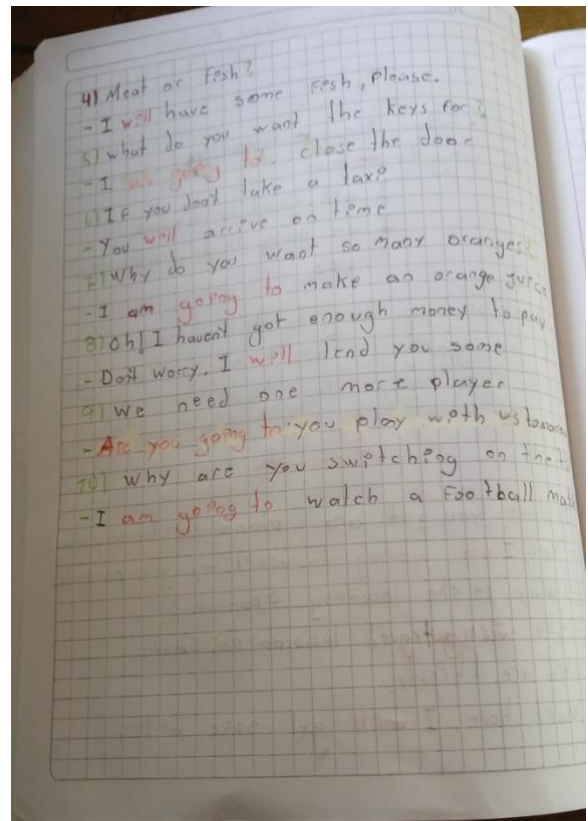 4) Meat or Fish?
- I will have some fish, please.
5) What do you want the keys for?
- I am going to close the door
6) If you don't take a taxi
- You will arrive on time
7) Why do you want so many oranges?
- I am going to make an orange juice
8) Oh! I haven't got enough money to pay
- Don't worry. I will lend you some
9) We need one more player
- Are you going to you play with us
10) Why are you switching on the
- I am going to watch a football